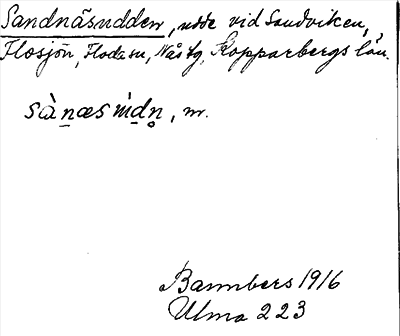 Sandnäsudden, udde vid Sandviken,
Flosjön, Floda sn, Nås tg, Kopparbergs län.
sànæsùdn̥, m.
Bannbers 1916
Ulma 223